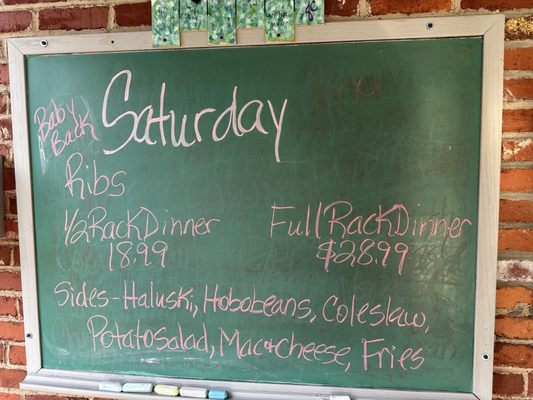 Saturday
Baby
Back
Ribs
1/2 Rack Dinner
18.99
Full Rack Dinner
$28.99
Sides - Haluski, Hobobeans, Coleslaw,
Potato Salad, Mac + Cheese, Fries